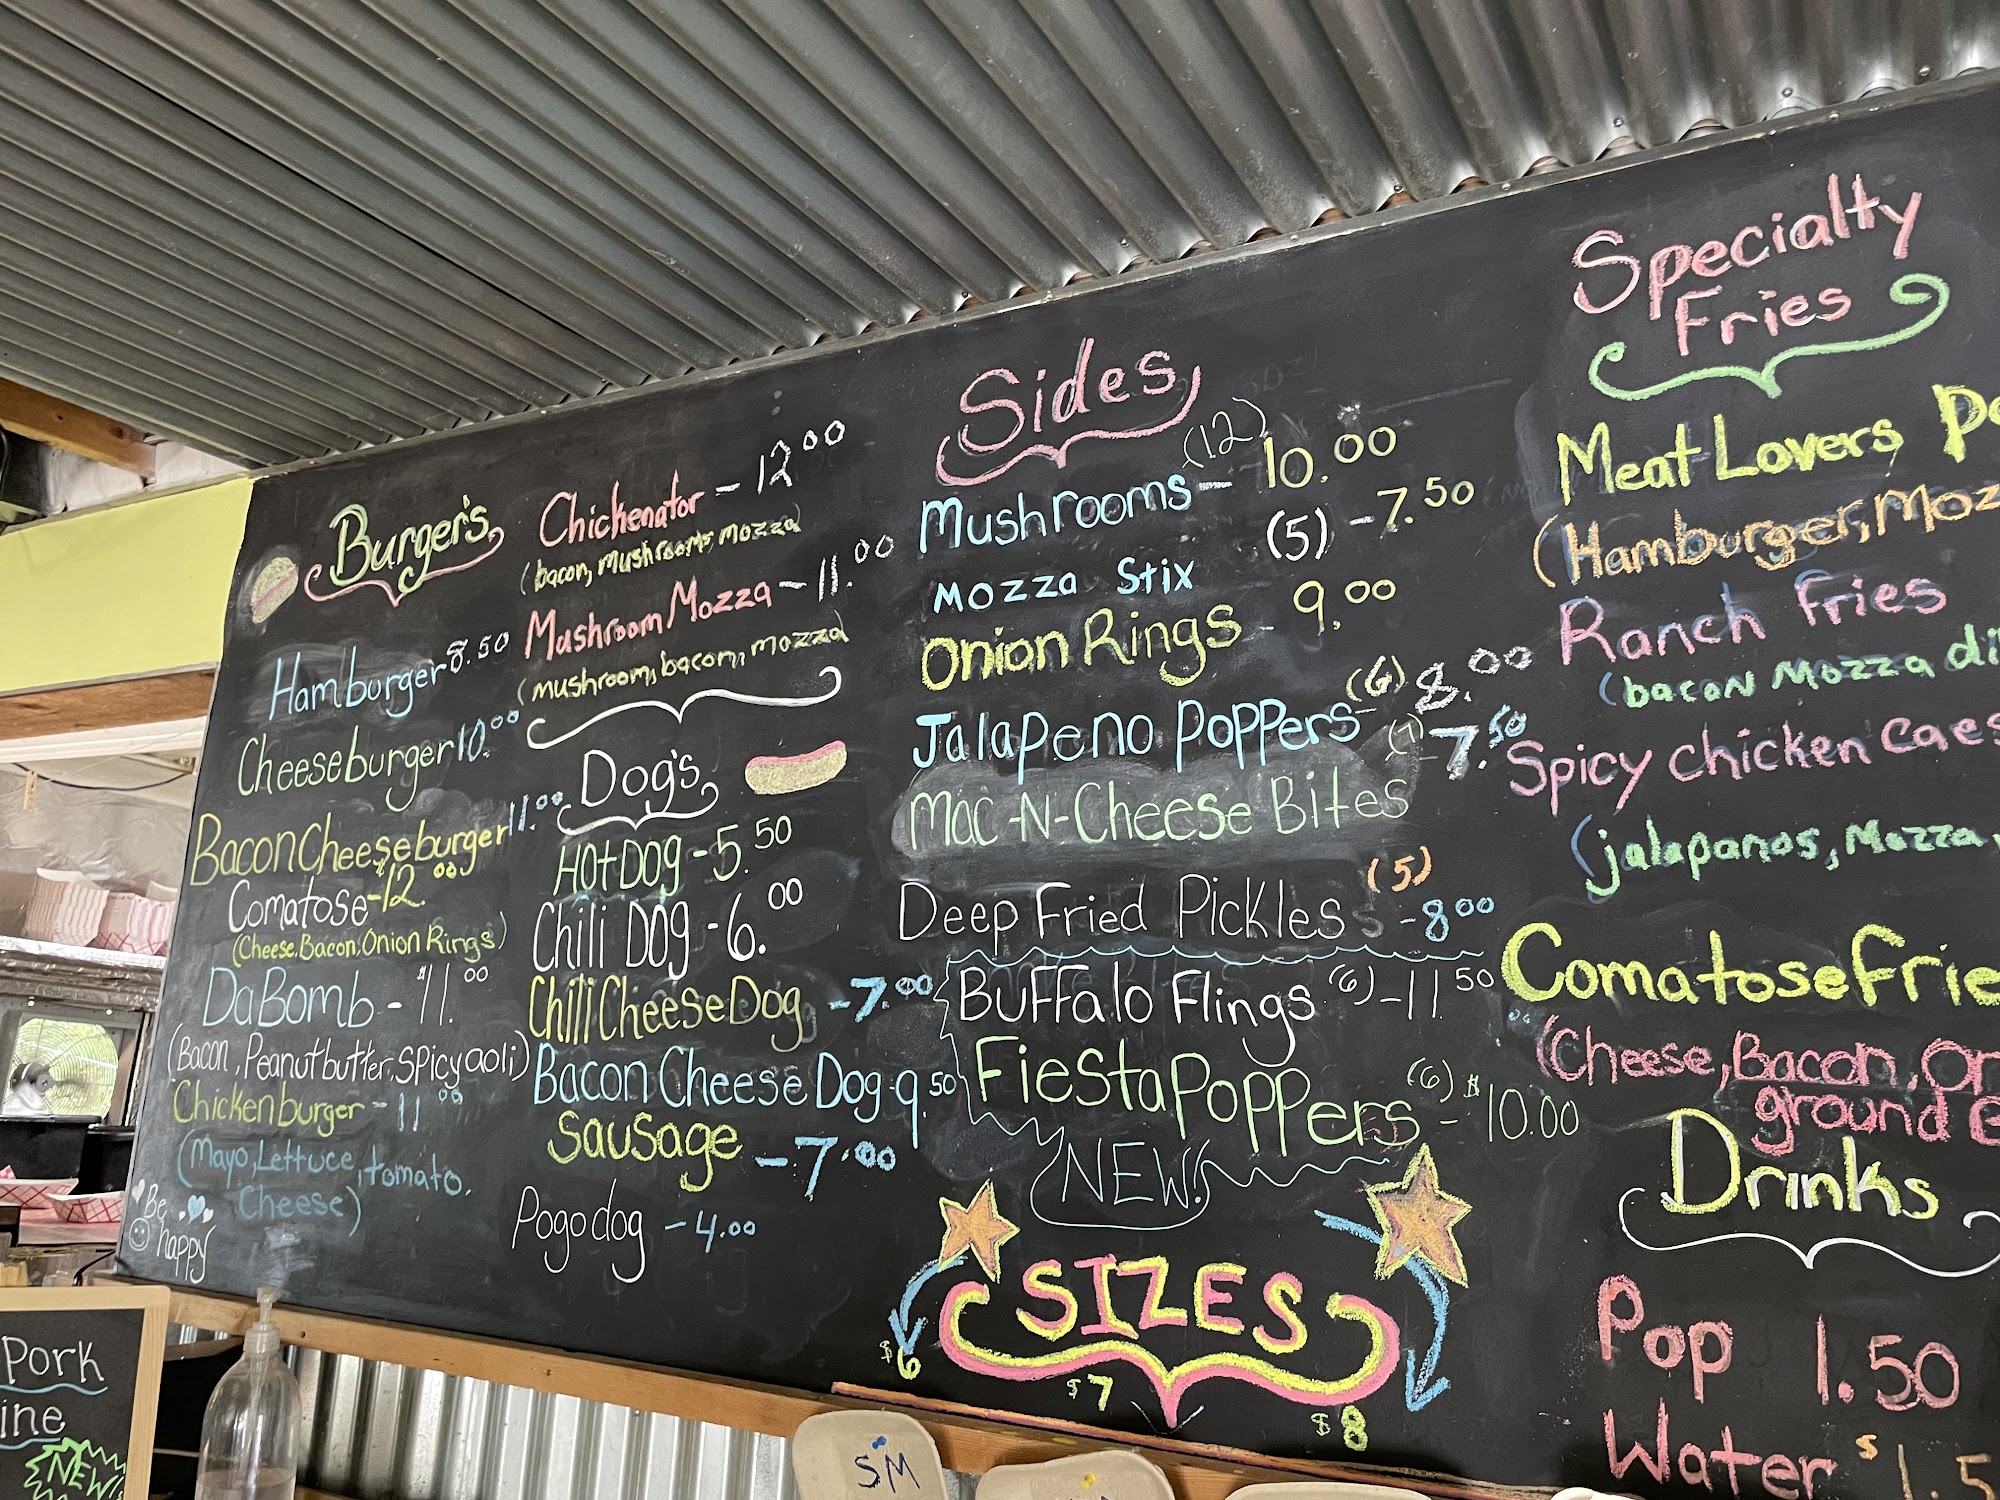 Burger's
Hamburger 8.50
Cheeseburger 10.00
Bacon Cheeseburger 11.00
Comatose - $12.00
(Cheese, Bacon, Onion Rings)
DaBomb - $11.00
(Bacon, Peanutbutter, Spicy aoli)
Chickenburger - 11.00
(Mayo, Lettuce, tomato.
Cheese)
Be
happy
Chickenator - 12.00
(bacon, mushrooms, mozza)
Mushroom Mozza - 11.00
(mushroom, bacon, mozza)
Dog's
Hot Dog - 5.50
Chili Dog - 6.00
Chili Cheese Dog - 7.00
Bacon Cheese Dog - 9.50
Sausage - 7.00
Pogo dog - 4.00
Sides
Mushrooms (12) - 10.00
Mozza Stix (5) - 7.50
Onion Rings - 9.00
Jalapeno Poppers (6) - 8.00
Mac-N-Cheese Bites (7) 7.50
Deep Fried Pickles (5) - 8.00
Buffalo Flings (6) - 11.50
Fiesta Poppers (6) - $10.00
NEW!
SIZES
$6
$7
$8
SM
Specialty
Fries
Meat Lovers Po
(Hamburger, Moz
Ranch Fries
(bacon Mozza di
Spicy chicken Caes
(jalapanos, Mozza,
Comatose Frie
(Cheese, Bacon, On
ground
Drinks
Pop 1.50
Water $1.5
Pork
ine
NEW!